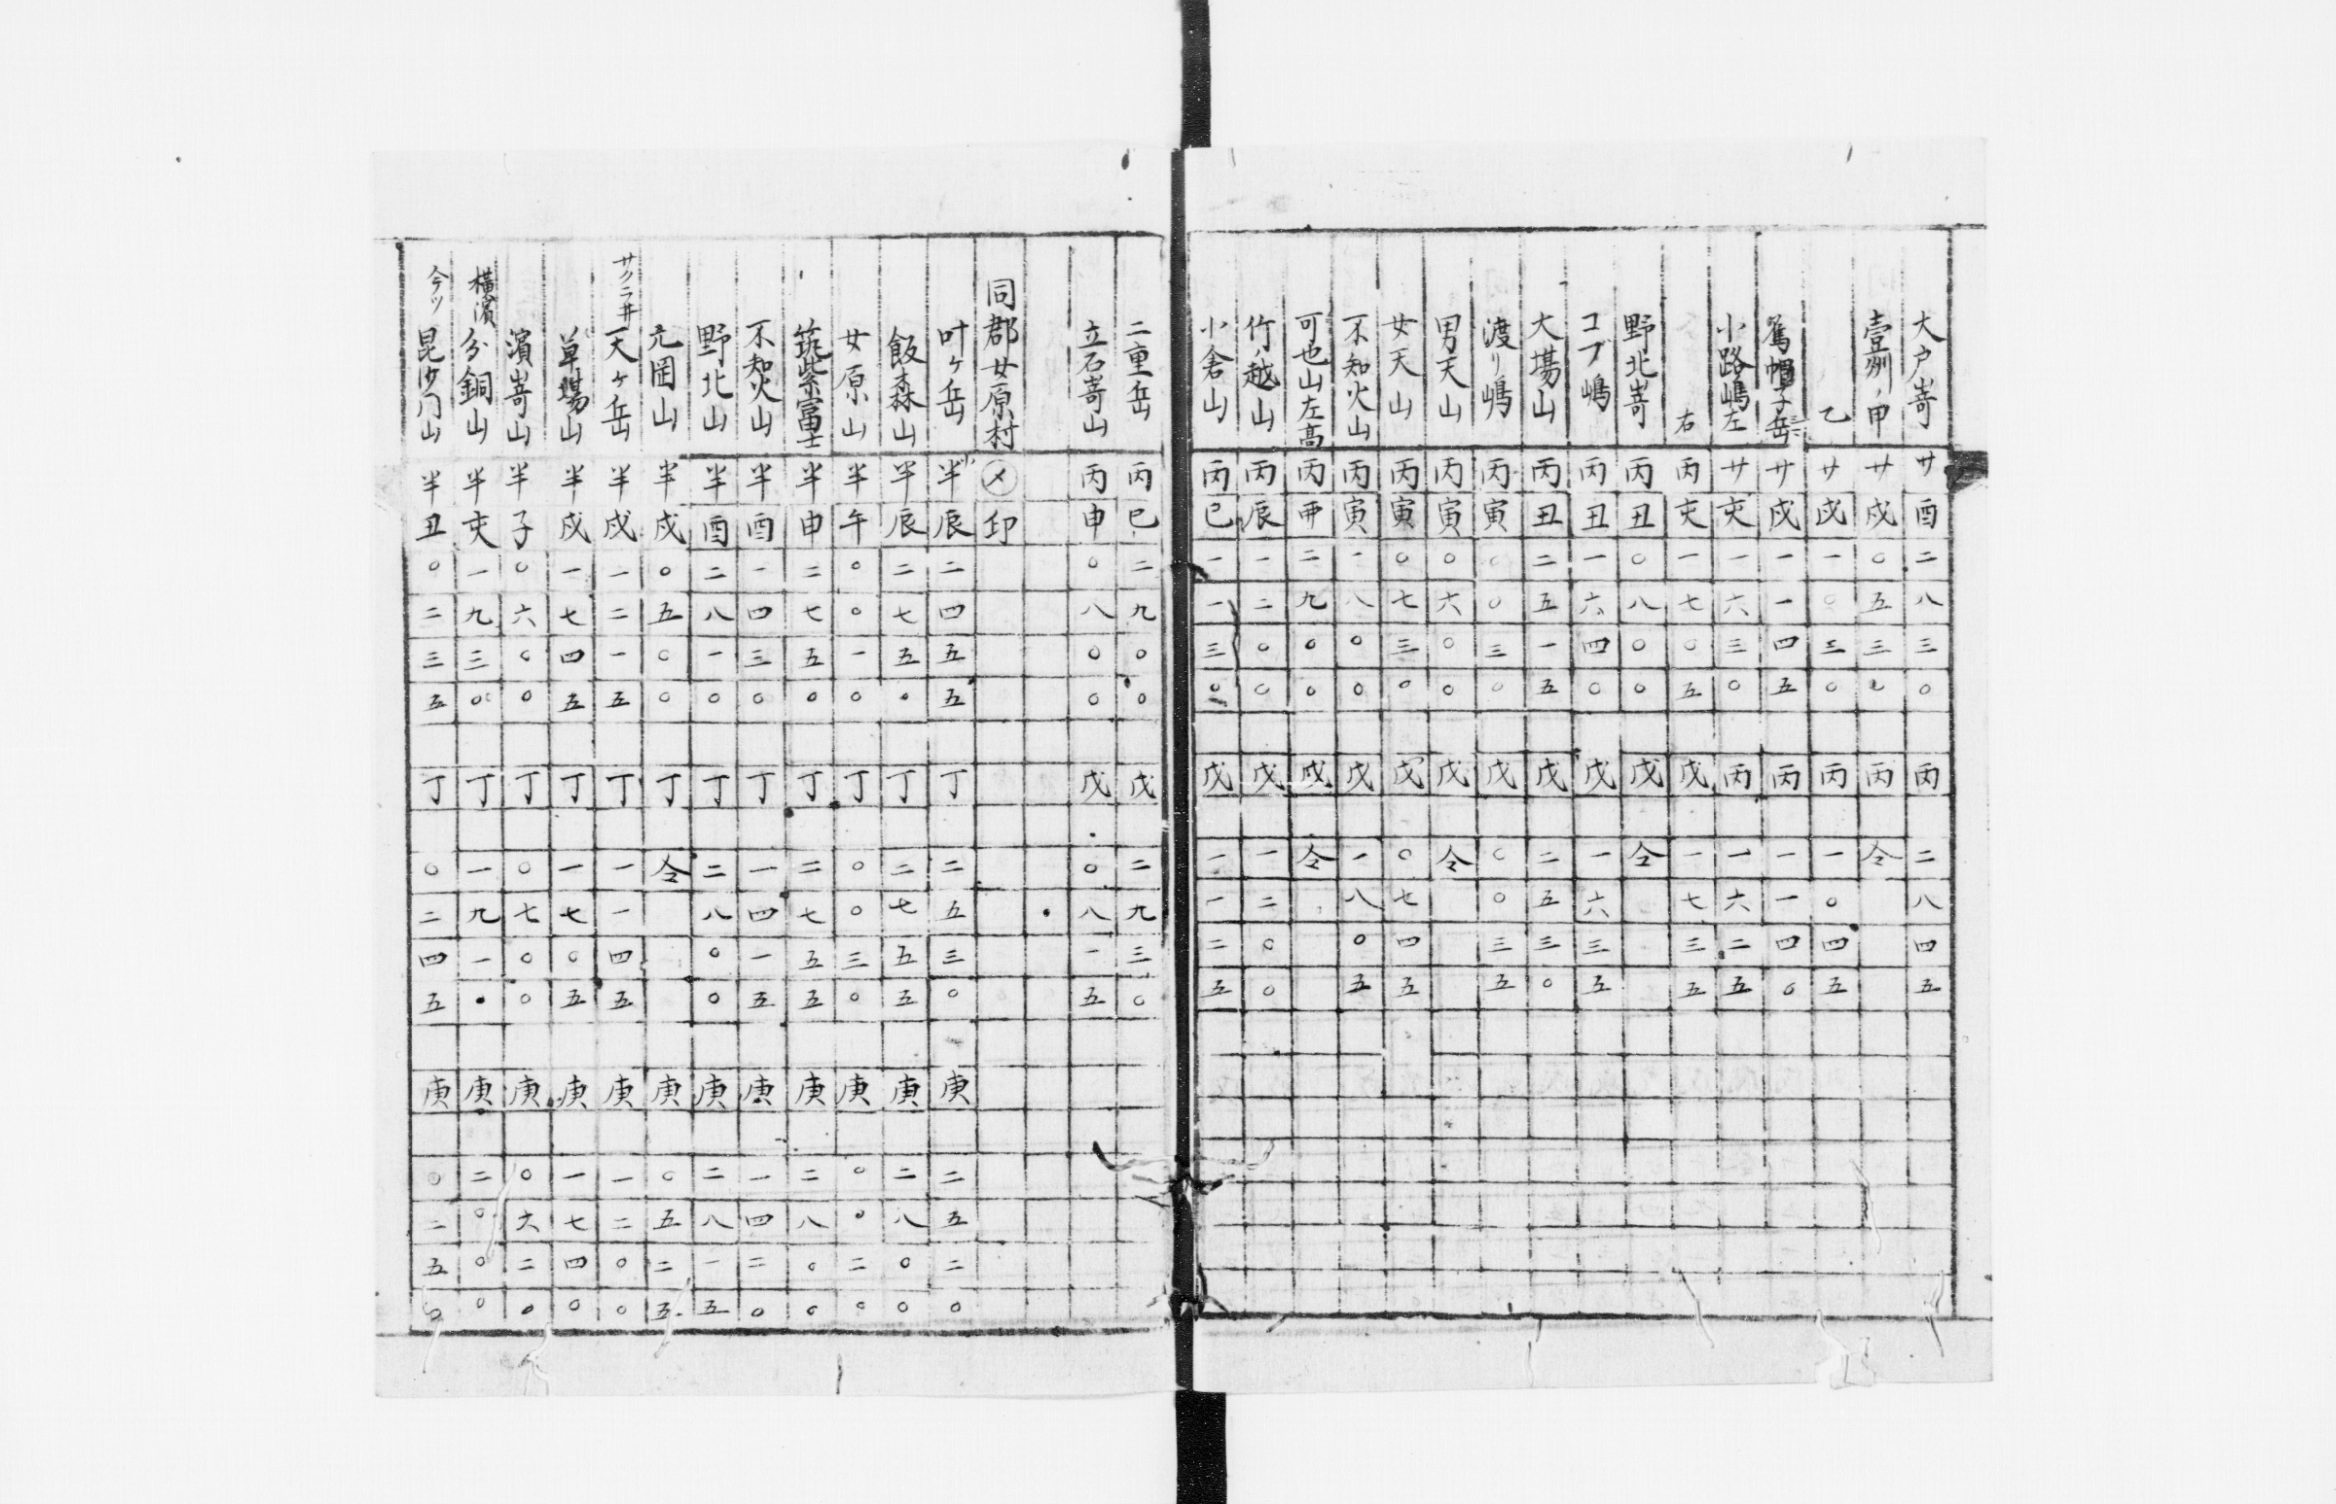 大戸嵜 廿酉 二八三〇 丙 二八四五
壹刕ノ甲 廿戌 〇五三〇 丙 仝
乙 廿戌 一〇三〇 丙 一〇四五
帽子岳 廿戌 一一四五 丙 一一四〇
小路嶋左 廿亥 一六三〇 丙 一六二五
右 丙亥 一七〇五 戊 一七三五
野北嵜 丙丑 〇八〇〇 戊 仝
コブ嶋 丙丑 一六四〇 戊 一六三五
大場山 丙丑 二五一五 戊 二五三〇
渡リ嶋 丙寅 〇〇三〇 戊 〇〇三五
男天山 丙寅 〇六〇〇 戊 仝
女天山 丙寅 〇七三〇 戊 〇七四五
不知火山 丙寅 一八〇〇 戊 一八〇五
可也山左高 丙 二九〇〇 戊 仝
竹ノ越山 丙辰 一二〇〇 戊 一二〇〇
小倉山 丙巳 一一三〇 戊 一一二五
二重岳 丙巳 二九〇〇 戊 二九三〇
立石嵜山 丙申 〇八〇〇 戊 〇八一五
同郡女原村 〆印
叶ヶ岳 半辰 二四五五 丁 二五三〇 庚 二五二〇
飯森山 半辰 二七五〇 丁 二七五五 庚 二八〇〇
女原山 半午 〇〇一〇 丁 〇〇三〇 庚 〇〇二〇
筑紫富士 半申 二七五〇 丁 二七五五 庚 二八〇〇
不知火山 半酉 一四三〇 丁 一四一五 庚 一四二〇
野北山 半酉 二八一〇 丁 二八〇〇 庚 二八一五
元岡山 半戌 〇五〇〇 丁 仝 庚 〇五二五
サクラ井 天ヶ岳 半戌 一二一五 丁 一一四五 庚 一二〇〇
草場山 半戌 一七四五 丁 一七〇五 庚 一七四〇
濱嵜山 半子 〇六〇〇 丁 〇七〇〇 庚 〇六二〇
横濱 分銅山 半亥 一九三〇 丁 一九一〇 庚 二〇〇〇
今ツ 昆沙门山 半丑 〇二三五 丁 〇二四五 庚 〇二五〇